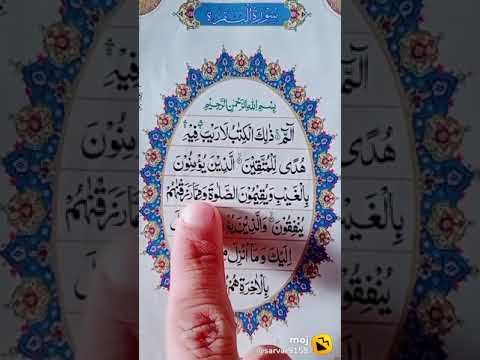 سُوْرَةُ الْبَقَرَة
بِسْمِ اللهِ الرَّحْمٰنِ الرَّحِيْمِ
الٓمّٓ ذٰلِكَ الْكِتٰبُ لَا رَيْبَ فِيْهِ
هُدًى لِّلْمُتَّقِيْنَ الَّذِيْنَ يُؤْمِنُوْنَ
بِالْغَيْبِ وَيُقِيْمُوْنَ الصَّلٰوةَ وَمِمَّا رَزَقْنٰهُمْ
يُنْفِقُوْنَ وَالَّذِيْنَ
اِلَيْكَ وَمَآ اُنْزِلَ
بِالْاٰخِرَةِ هُمْ
moj
@sarvar9158